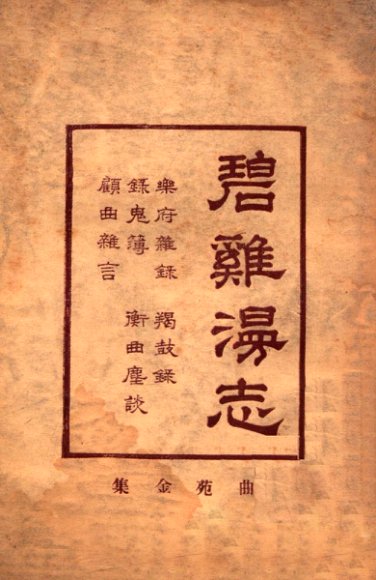 碧雞漫志
樂府雜錄 羯鼓錄
錄鬼簿 衡曲麈談
顧曲雜言
曲苑金集